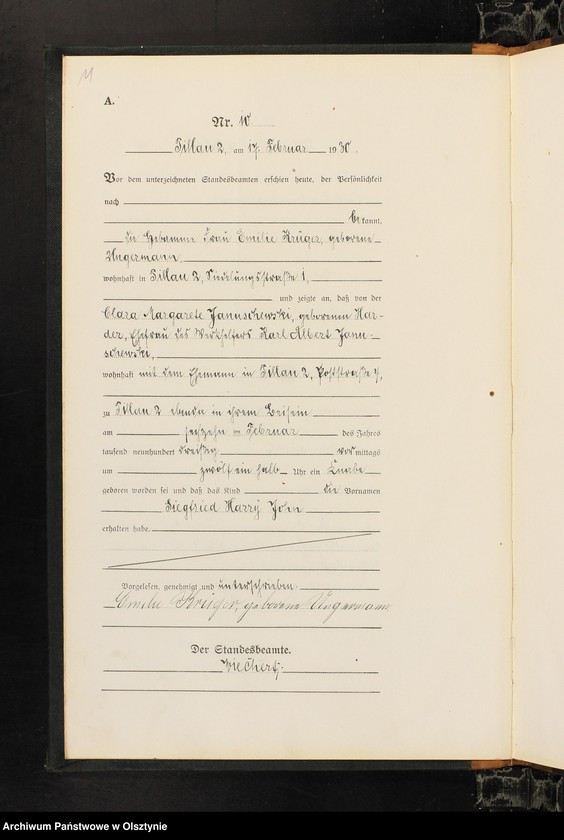 11
A.
Nr. 10
Pillau 2, am 17. Februar 1930.
Vor dem unterzeichneten Standesbeamten erschien heute, der Persönlichkeit
nach
bekannt,
die Hebamme Frau Emilie Krüger, geborene
Ungermann,
wohnhaft in Pillau 2, Siedlungsstraße 1,
und zeigte an, daß von der
Clara Margarete Jannschewski, geborenen Har-
der, Ehefrau des Werkhelfers Karl Albert Jann-
schewski,
wohnhaft mit dem Ehemann in Pillau 2, Poststraße
zu Pillau 2 ebenda in ihrem Beisein
am sechzehn ten Februar des Jahres
tausend neunhundert dreißig vormittags
um zwölf ein halb Uhr ein Knabe
geboren worden sei und daß das Kind die Vornamen
Siegfried Harry John
erhalten habe.
Vorgelesen, genehmigt und unterschrieben.
Emilie Krüger, geborene Ungermann
Der Standesbeamte.
Archiwum Państwowe w Olsztynie